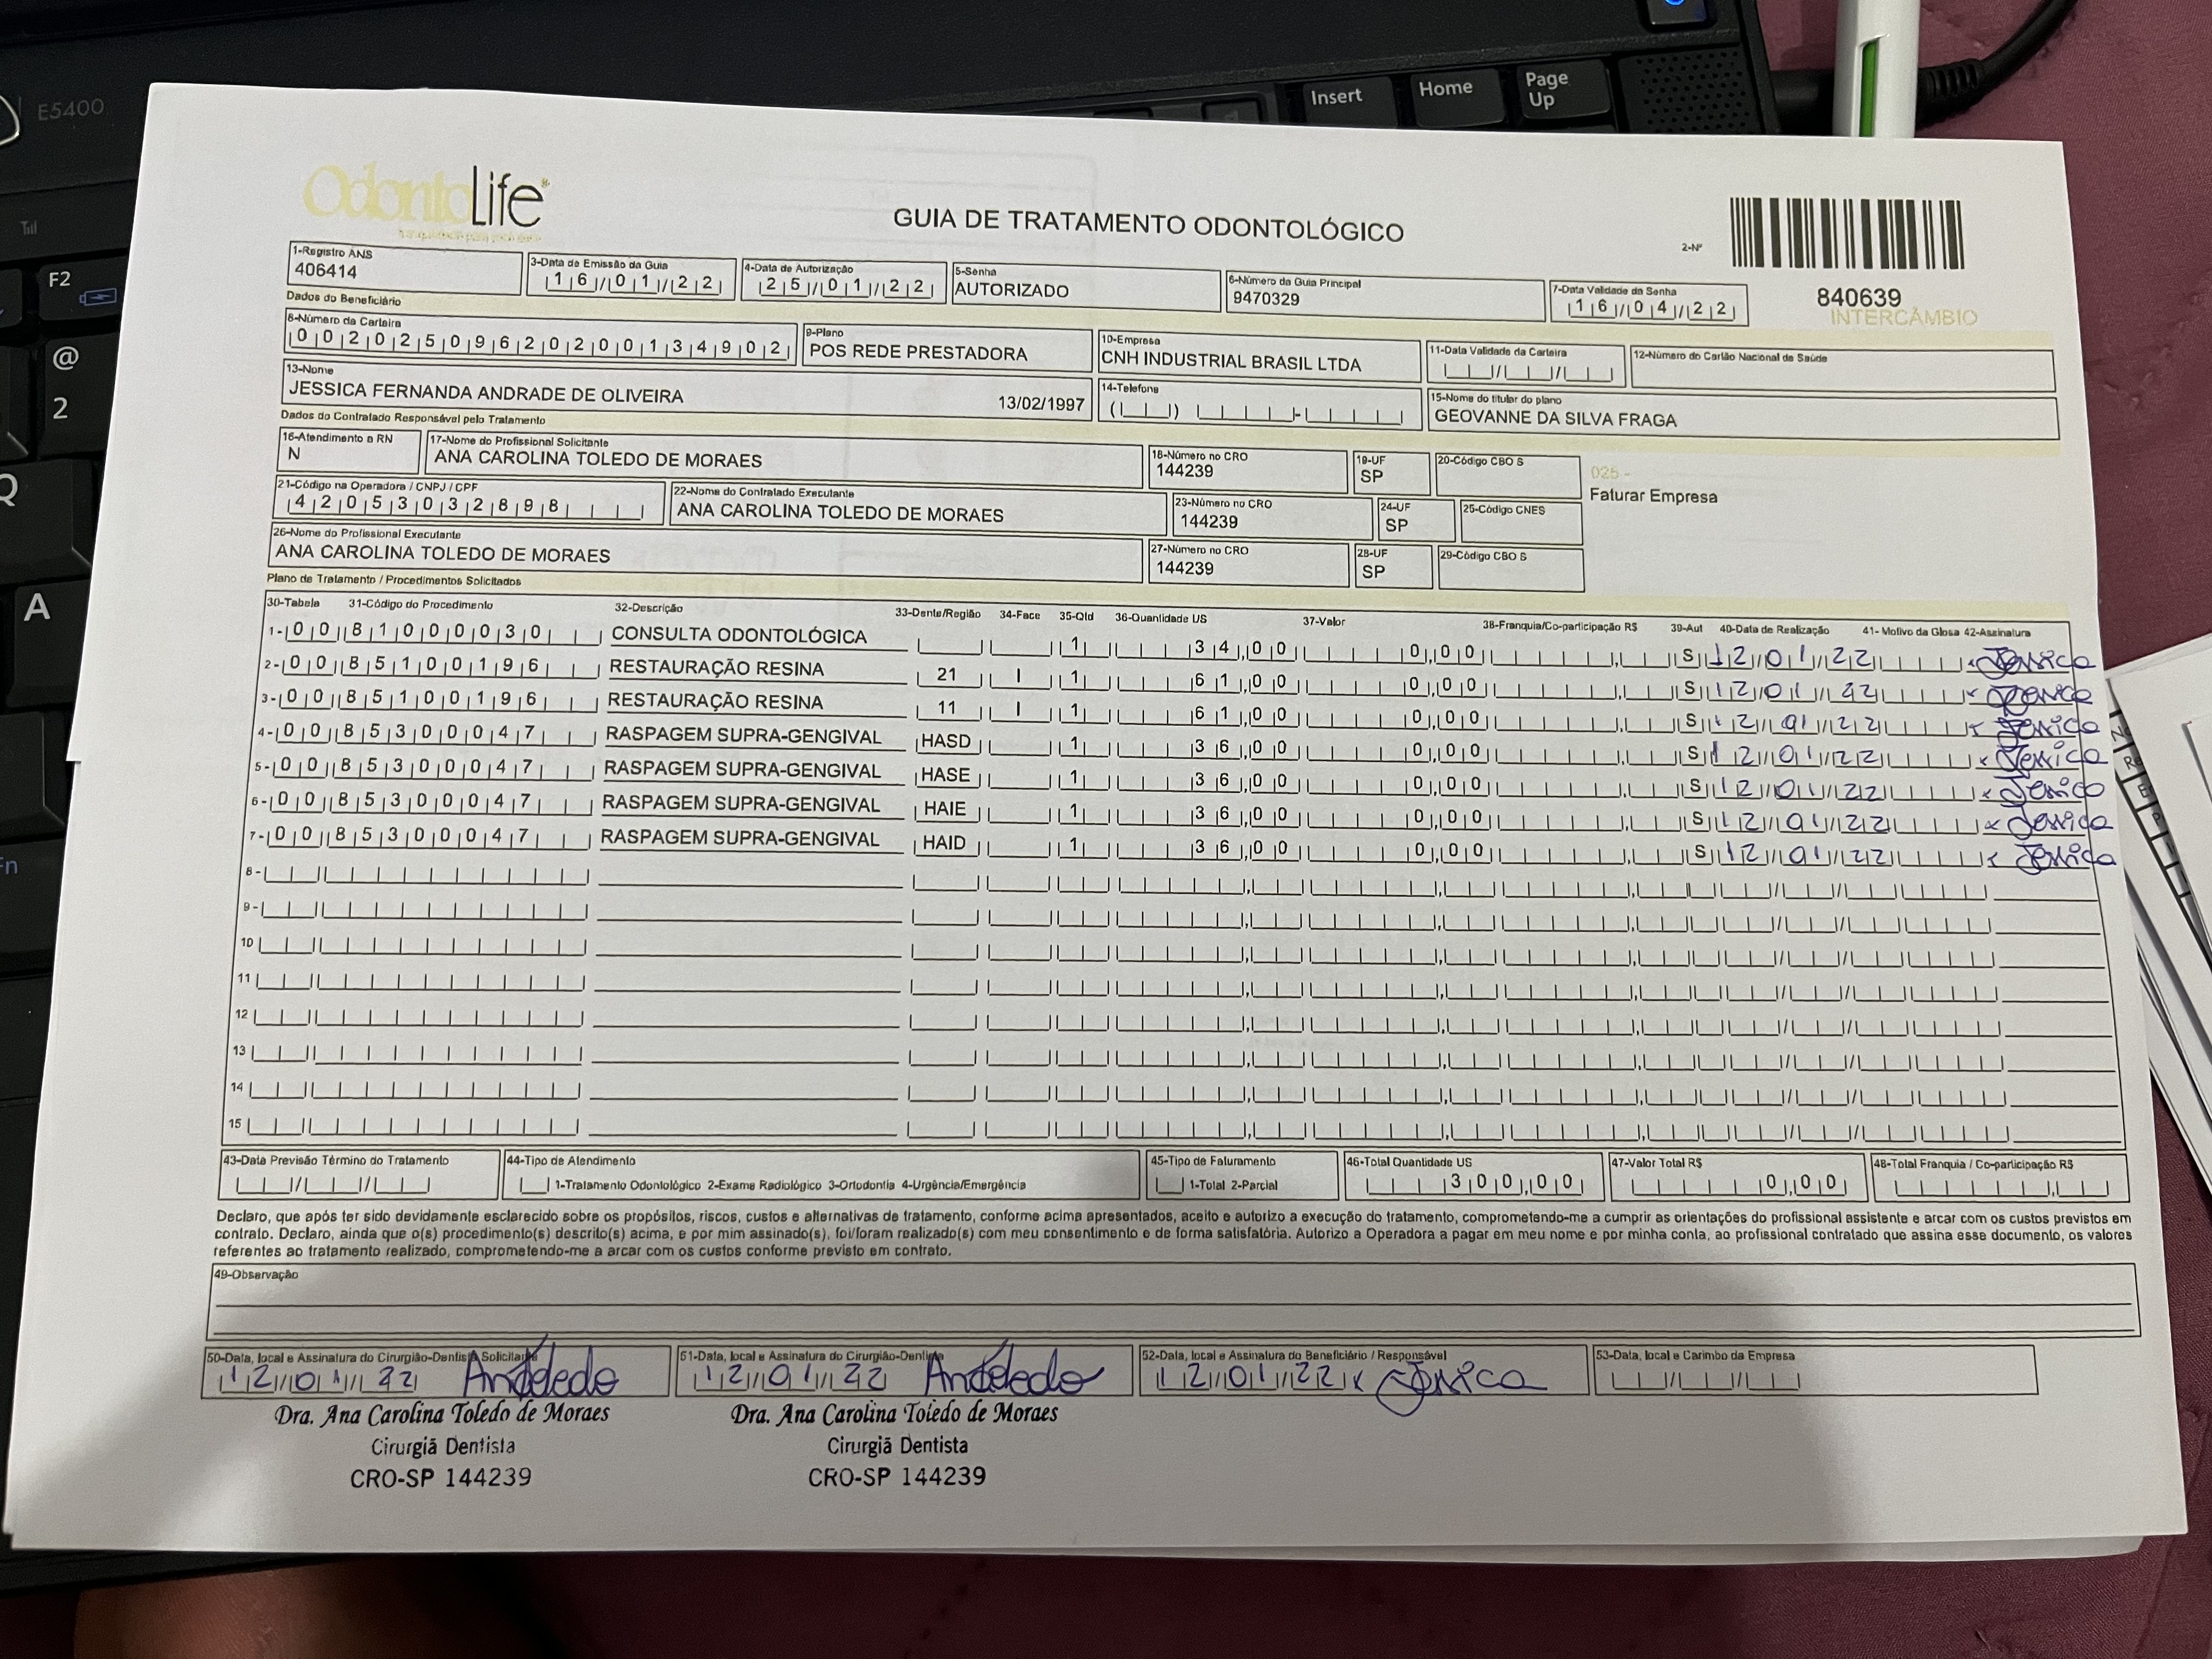 E5400
Insert
Home
Page Up
F2
@
2
Q
A
Fn
OdontoLife
GUIA DE TRATAMENTO ODONTOLÓGICO
2-Nº
840639
INTERCÂMBIO
1-Registro ANS
406414
3-Data de Emissão da Guia
16/01/22
4-Data de Autorização
25/01/22
5-Senha
AUTORIZADO
6-Número da Guia Principal
9470329
7-Data Validade da Senha
16/04/22
Dados do Beneficiário
8-Número da Carteira
00202509620200134902
9-Plano
POS REDE PRESTADORA
10-Empresa
CNH INDUSTRIAL BRASIL LTDA
11-Data Validade da Carteira
12-Número do Cartão Nacional de Saúde
13-Nome
JESSICA FERNANDA ANDRADE DE OLIVEIRA 13/02/1997
14-Telefone
15-Nome do titular do plano
GEOVANNE DA SILVA FRAGA
Dados do Contratado Responsável pelo Tratamento
16-Atendimento a RN
N
17-Nome do Profissional Solicitante
ANA CAROLINA TOLEDO DE MORAES
18-Número no CRO
144239
19-UF
SP
20-Código CBO S
025 -
Faturar Empresa
21-Código na Operadora / CNPJ / CPF
42053032898
22-Nome do Contratado Executante
ANA CAROLINA TOLEDO DE MORAES
23-Número no CRO
144239
24-UF
SP
25-Código CNES
26-Nome do Profissional Executante
ANA CAROLINA TOLEDO DE MORAES
27-Número no CRO
144239
28-UF
SP
29-Código CBO S
Plano de Tratamento / Procedimentos Solicitados
30-Tabela 31-Código do Procedimento 32-Descrição 33-Dente/Região 34-Face 35-Qtd 36-Quantidade US 37-Valor 38-Franquia/Co-participação R$ 39-Aut 40-Data de Realização 41- Motivo da Glosa 42-Assinatura
1- 00 81000030 CONSULTA ODONTOLÓGICA 1 34,00 0,00 S 12/01/22 x Jessica
2- 00 85100196 RESTAURAÇÃO RESINA 21 I 1 61,00 0,00 S 12/01/22 x Jessica
3- 00 85100196 RESTAURAÇÃO RESINA 11 I 1 61,00 0,00 S 12/01/22 x Jessica
4- 00 85300047 RASPAGEM SUPRA-GENGIVAL HASD 1 36,00 0,00 S 12/01/22 x Jessica
5- 00 85300047 RASPAGEM SUPRA-GENGIVAL HASE 1 36,00 0,00 S 12/01/22 x Jessica
6- 00 85300047 RASPAGEM SUPRA-GENGIVAL HAIE 1 36,00 0,00 S 12/01/22 x Jessica
7- 00 85300047 RASPAGEM SUPRA-GENGIVAL HAID 1 36,00 0,00 S 12/01/22 x Jessica
8-
9-
10
11
12
13
14
15
43-Data Previsão Término do Tratamento
44-Tipo de Atendimento
1-Tratamento Odontológico 2-Exame Radiológico 3-Ortodontia 4-Urgência/Emergência
45-Tipo de Faturamento
1-Total 2-Parcial
46-Total Quantidade US
300,00
47-Valor Total R$
0,00
48-Total Franquia / Co-participação R$
Declaro, que após ter sido devidamente esclarecido sobre os propósitos, riscos, custos e alternativas de tratamento, conforme acima apresentados, aceito e autorizo a execução do tratamento, comprometendo-me a cumprir as orientações do profissional assistente e arcar com os custos previstos em
contrato. Declaro, ainda que o(s) procedimento(s) descrito(s) acima, e por mim assinado(s), foi/foram realizado(s) com meu consentimento e de forma satisfatória. Autorizo a Operadora a pagar em meu nome e por minha conta, ao profissional contratado que assina esse documento, os valores
referentes ao tratamento realizado, comprometendo-me a arcar com os custos conforme previsto em contrato.
49-Observação
50-Data, local e Assinatura do Cirurgião-Dentista Solicitante
12/01/22
51-Data, local e Assinatura do Cirurgião-Dentista
12/01/22
52-Data, local e Assinatura do Beneficiário / Responsável
12/01/22 x Jessica
53-Data, local e Carimbo da Empresa
Dra. Ana Carolina Toledo de Moraes
Cirurgiã Dentista
CRO-SP 144239
Dra. Ana Carolina Toledo de Moraes
Cirurgiã Dentista
CRO-SP 144239